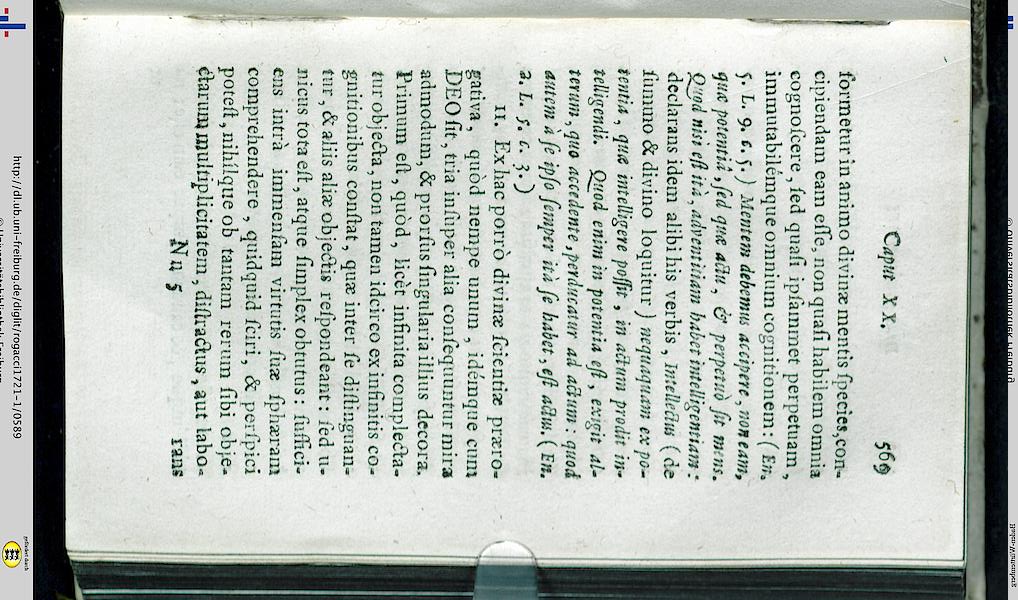 Caput XX. 569
formetur in animo divinæ mentis ſpecies, con-
cipiendam eam eſſe, non quaſi habilem omnia
cognoſcere, ſed quaſi ipſammet perpetuam,
immutabilémque omnium cognitionem: (En.
5. L. 9. c. 5.) Mentem debemus accipere, non eam,
quæ potentiâ, ſed quæ actu, & perpetuò ſit mens.
Quod niſi eſt ità, adventitiam habet intelligentiam:
declarans idem alibi his verbis, Intellectus (de
ſummo & divino loquitur) nequaquam ex po-
tentia, quâ intelligere poſſit, in actum prodit in-
telligendi. Quod enim in potentia eſt, exigit al-
terum, quo accedente, perducatur ad actum: quod
autem à ſe ipſo ſemper ità ſe habet, eſt actus. (En.
2. L. 5. c. 3.)
II. Ex hac porrò divinæ ſcientiæ præro-
gativa, quòd nempe unum, idémque cum
DEO ſit, tria inſuper alia conſequuntur mira
admodum, & prorſus ſingularia illius decora.
Primum eſt, quòd, licèt infinita complecta-
tur objecta, non tamen idcirco ex infinitis co-
gnitionibus conſtat, quæ inter ſe diſtinguan-
tur, & aliis aliæ objectis reſpondeant: ſed u-
nicus tota eſt, atque ſimplex obtutus: ſuffici-
ens intrà immenſam virtutis ſuæ ſphæram
comprehendere, quidquid ſciri, & perſpici
poteſt, nihílque ob tantam rerum ſibi obje-
ctarum multiplicitatem, diſtractus, aut labo-
Nn 5 rans
http://dl.ub.uni-freiburg.de/diglit/rogacci1721-1/0589
© Universitätsbibliothek Freiburg
gefördert durch